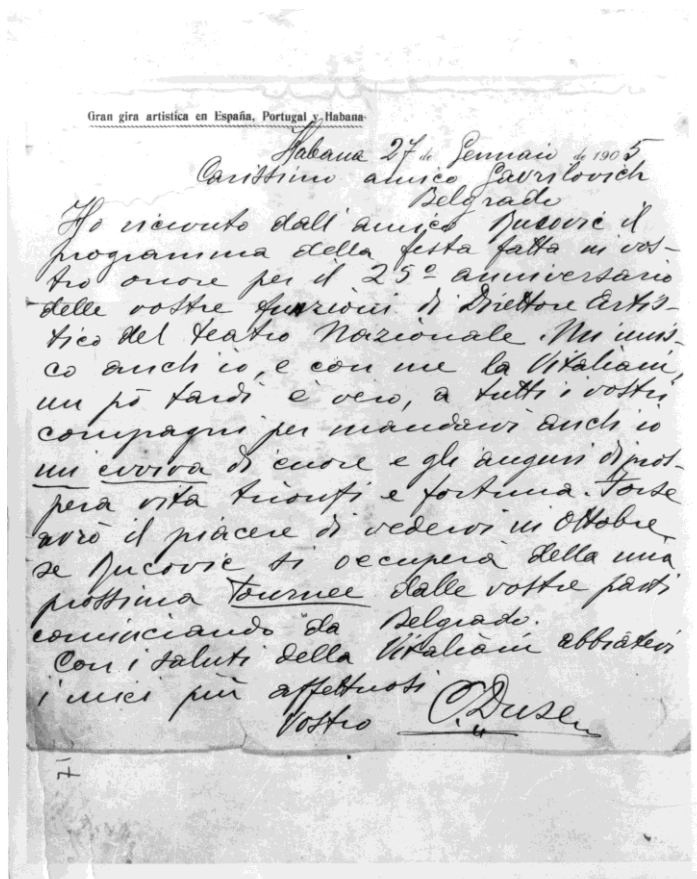 Gran gira artistica en España, Portugal y Habana
Habana 27 de Gennaio de 1905
Carissimo amico Gavrilovich
Belgrado
Ho ricevuto dall'amico Bucovic il
programma della festa fatta in vos-
tro onore per il 25º anniversario
delle vostre funzioni di Direttore Artis-
tico del Teatro Nazionale. Mi unis-
co anch'io, e con me la Vitaliani,
un pò tardi è vero, a tutti i vostri
compagni per mandarvi anch'io
un evviva di cuore e gli auguri di pros-
pera vita trionfi e fortuna. Forse
avrò il piacere di vedervi in Ottobre
se Bucovic si occuperà della mia
prossima Tournee dalle vostre parti
cominciando da Belgrado.
Con i saluti della Vitaliani abbiatevi
i miei più affettuosi
Vostro C. Duse
71